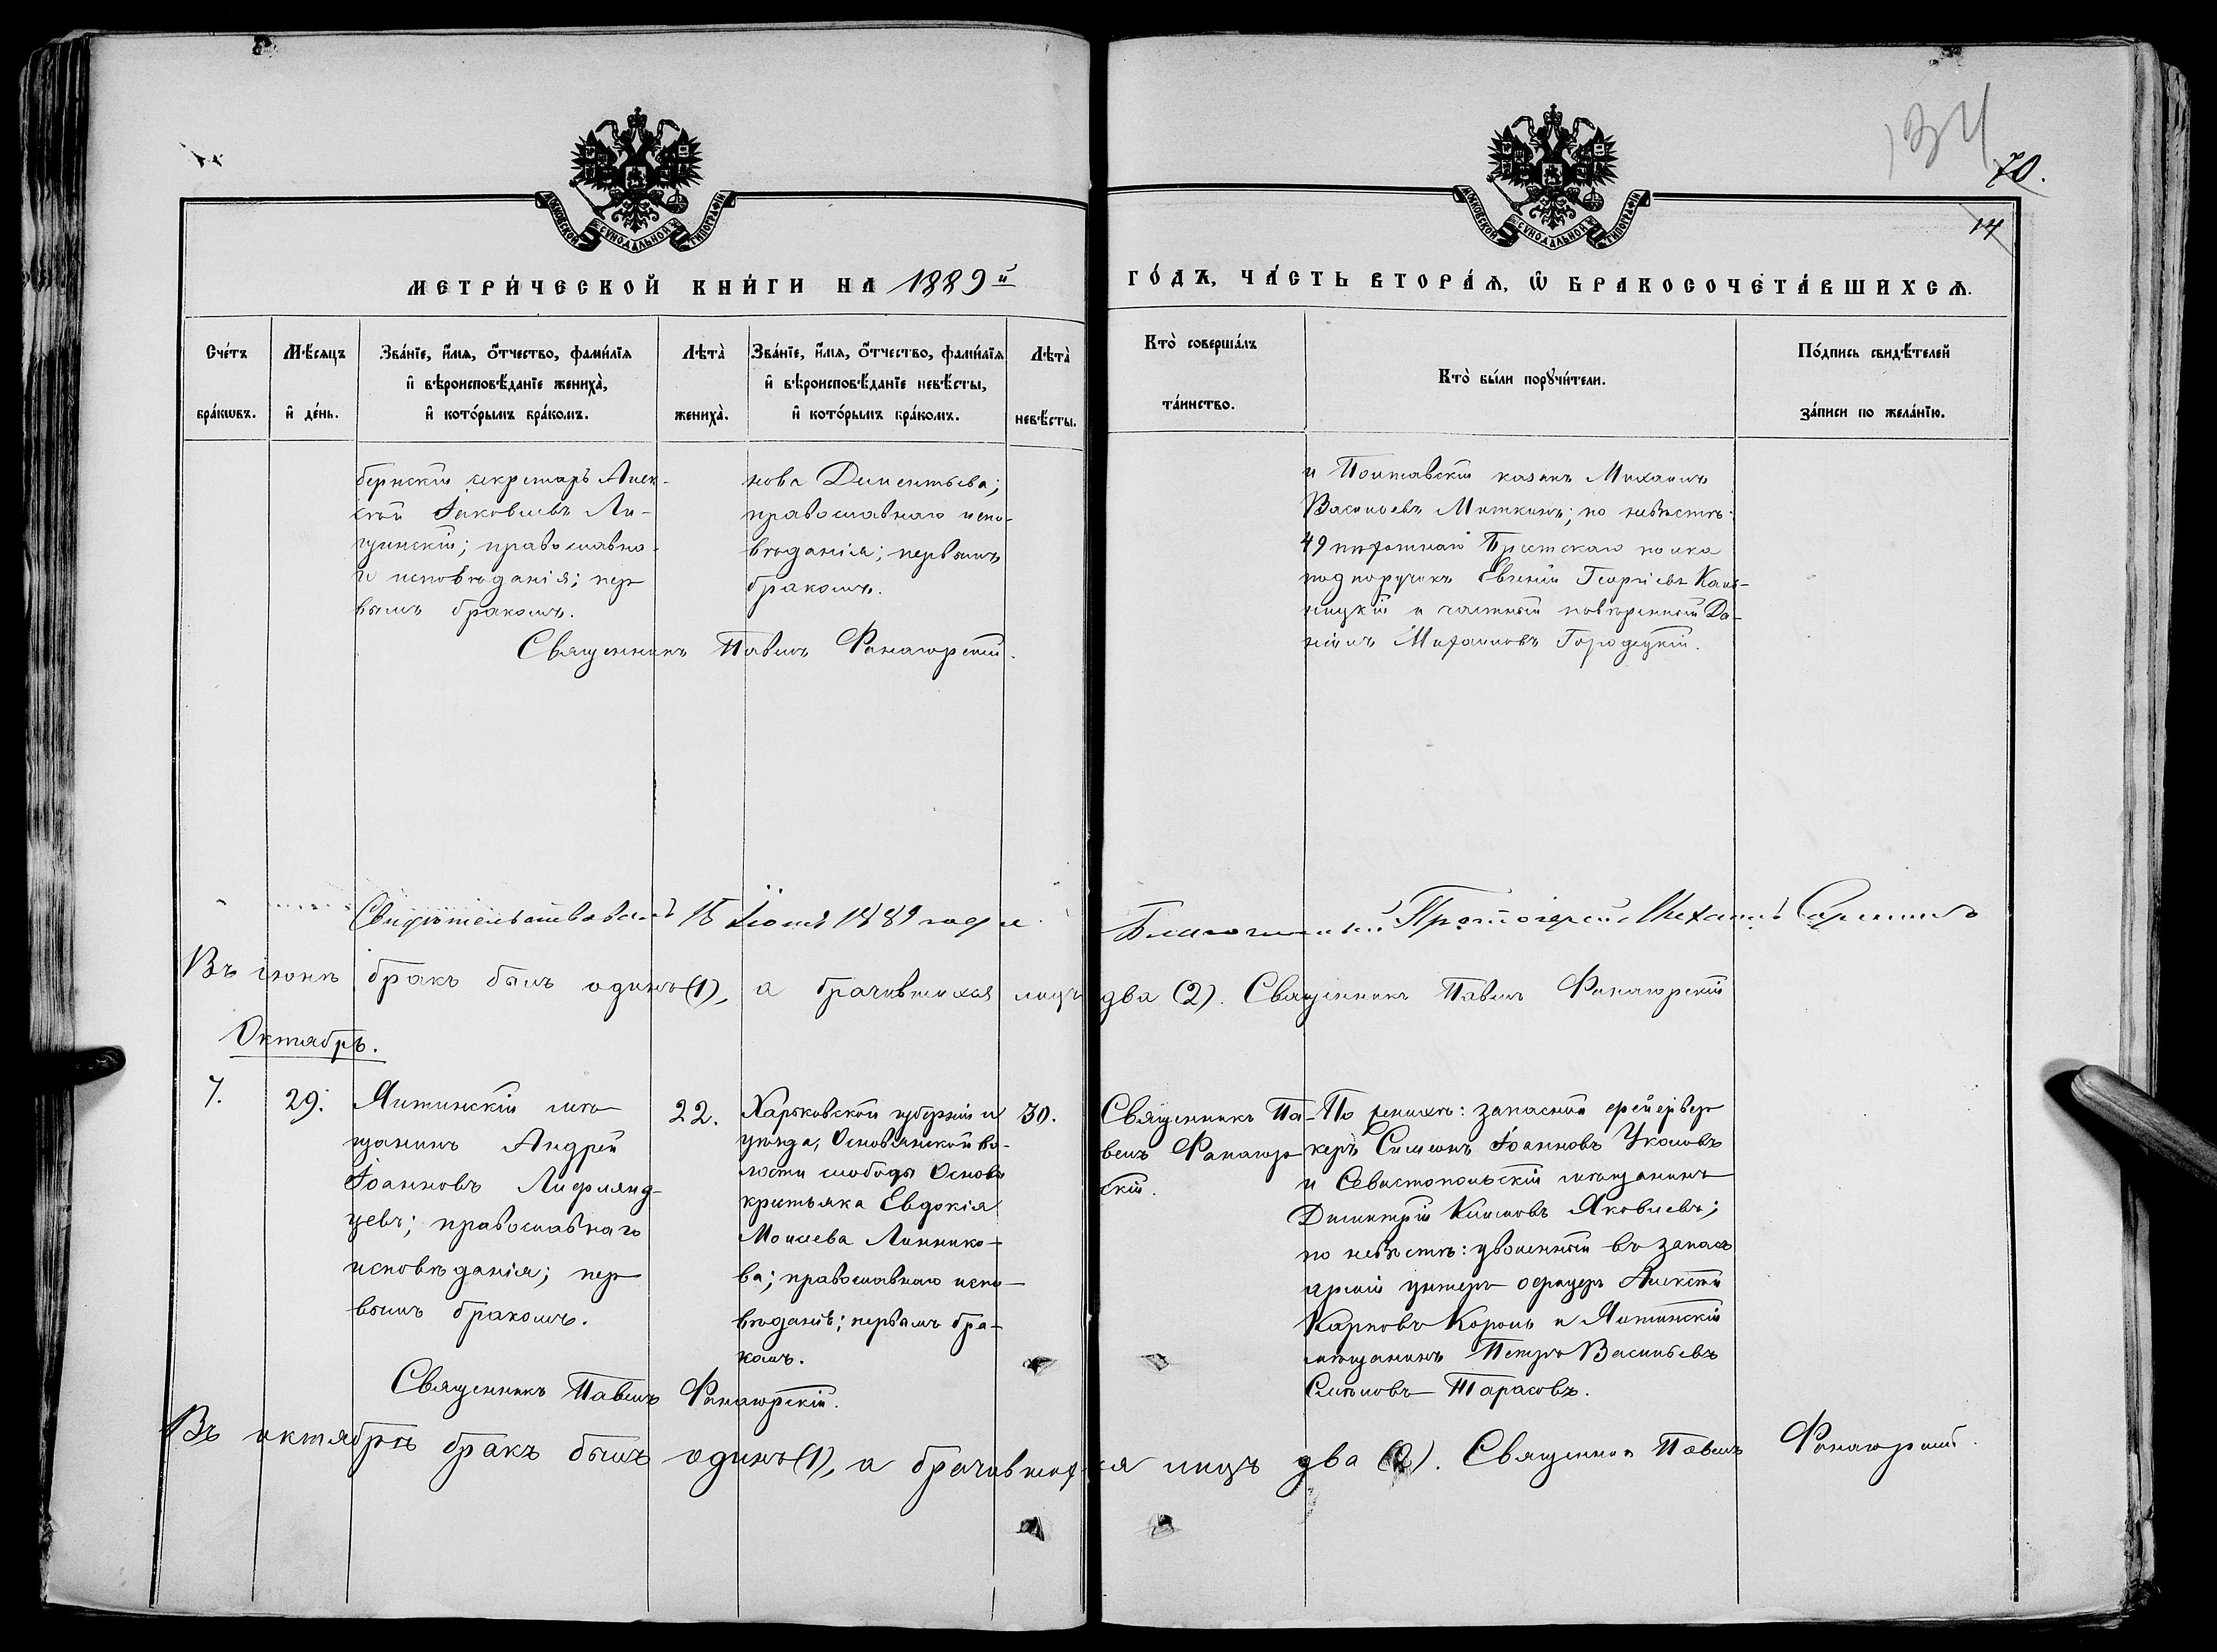 134
70.
14
МОСКОВСКОЙ СѴНОДАЛЬНОЙ ТИПОГРАФІИ
МОСКОВСКОЙ СѴНОДАЛЬНОЙ ТИПОГРАФІИ
МЕТРИ́ЧЕСКОЙ КНИ́ГИ НА 1889й
ГО́ДЪ, ЧА́СТЬ ВТОРА́Ѧ, Ѿ БРАКОСОЧЕТА́ВШИХСѦ.
Сче́тъ
бра́кѡвъ.
Мѣ́сяцъ
и҆ де́нь.
Зва́нїе, и҆́мя, о҆́тчество, фами́лїя
и҆ вѣроисповѣ́данїе жениха̀,
и҆ кото́рымъ бра́комъ.
Лѣта̀
жениха̀.
Зва́нїе, и҆́мя, о҆́тчество, фами́лїя
и҆ вѣроисповѣ́данїе невѣ́сты,
и҆ кото́рымъ бра́комъ.
Лѣта̀
невѣ́сты.
Кто̀ соверша́лъ
та́инство.
Кто̀ бы́ли порꙋчи́тели.
По́дпись свидѣ́телей
за́писи по жела́нїю.
бернскій секретарь Алек-
сѣй Іаковлевъ Ли-
щинскій; православна-
го исповѣданія; пер
вымъ бракомъ.
нова Дементьева;
православнаго испо-
вѣданія; первымъ
бракомъ.
и Полтавскій казакъ Михаилъ
Васильевъ Миткинъ; по невѣстѣ:
49 пѣхотнаго Брестскаго полка
подпоручикъ Евгеній Георгіевъ
и частный повѣренный Да-
ніилъ Михаиловъ Городецкій.
Священникъ Павелъ Фанагорскій.
Свидѣтельствовалъ 15 Іюля 1889 года. Благочинный Протоіерей Михаилъ
Въ іюнѣ бракъ былъ одинъ (1), а брачившихся лицъ два (2). Священникъ Павелъ Фанагорскій
Октябрь.
7.
29.
Ялтинскій мѣ-
щанинъ Андрей
Іоанновъ Лифлянд-
цевъ; православнаго
исповѣданія; пер
вымъ бракомъ.
22.
Харьковской губерніи и
уѣзда, Основянской во-
лости слободы Основы
крестьянка Евдокія
Моисеева Линнико-
ва; православнаго испо-
вѣданія; первымъ бра-
комъ.
30.
Священникъ Па-
велъ Фанагор
скій.
По женихѣ: запасный фейервер
керъ Симеонъ Іоанновъ Уколовъ
и Севастопольскій мѣщанинъ
Димитрій Климовъ Яковлевъ;
по невѣстѣ: уволенный въ запасъ
арміи унтеръ офицеръ Алексѣй
Карповъ Король и Ялтинскій
мѣщанинъ Петръ Васильевъ
Тарасовъ.
Священникъ Павелъ Фанагорскій.
Въ октябрѣ бракъ былъ одинъ (1), а брачившихся лицъ два (2). Священникъ Павелъ Фанагорскій.